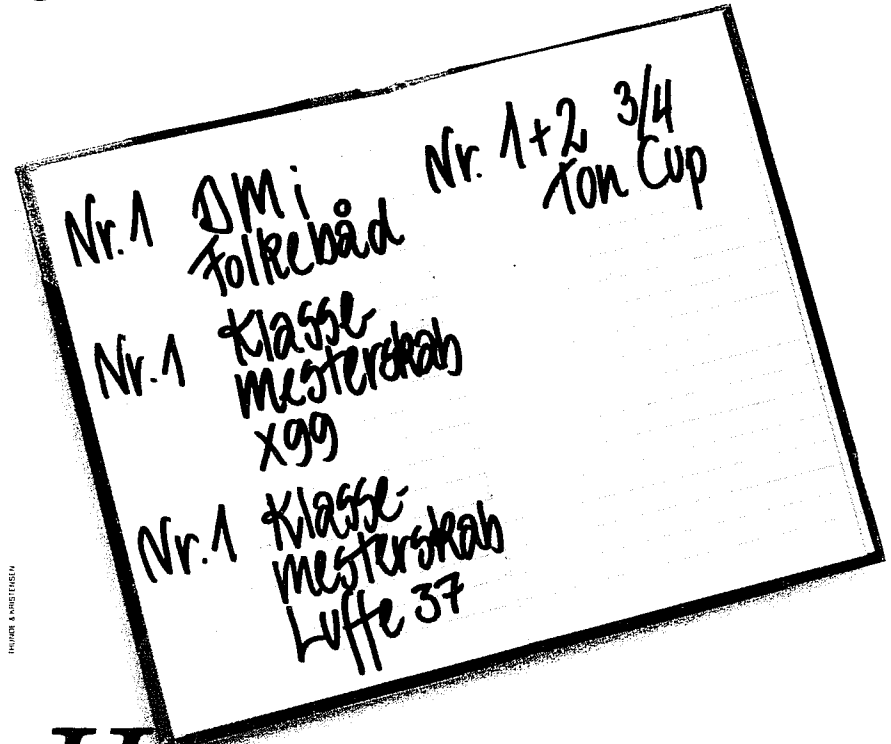 Nr. 1 DM i
Folkebåd
Nr. 1 Klasse-
mesterskab
X99
Nr. 1 Klasse-
mesterskab
Luffe 37
Nr. 1+2 3/4
Ton Cup